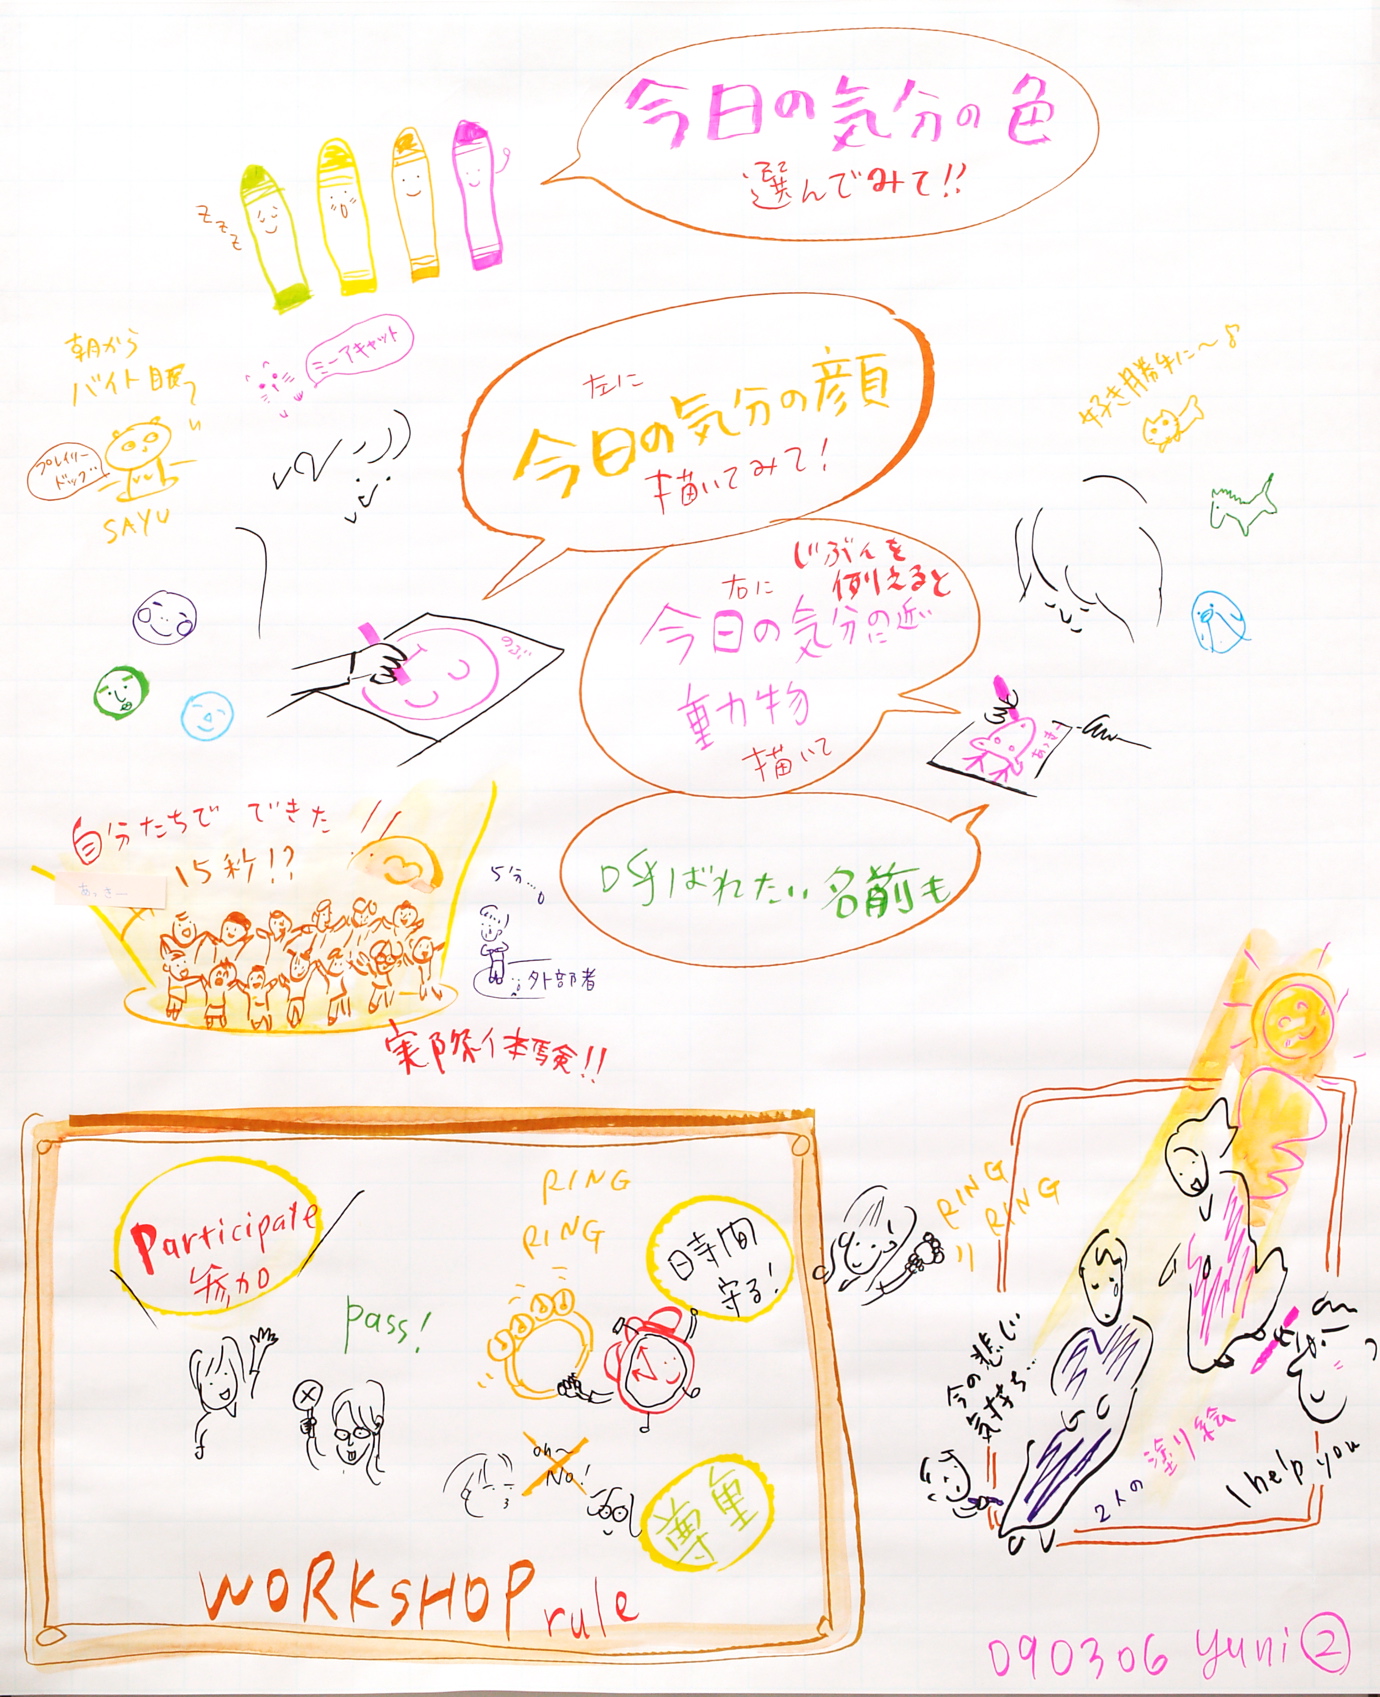 今日の気分の色
選んでみて!!
z z z
朝から
バイト眠っ
ミーアキャット
プレイリー
ドッグ
SAYU
左に
今日の気分の顔
描いてみて!
好き勝手に〜♪
右に
じぶんを
例えると
今日の気分のに近い
動物
描いて
のぶ
あっきー
呼ばれたい名前も
自分たちで できた
15秒!?
あっきー
5分…。
外部者
実際体験!!
Participate
参加
pass!
RING
RING
時間
守る!
oh~
No!
尊重
WORKSHOP rule
RING
RING
今の悲しい
気持ち…
2人の塗り絵
I help you
090306 yuni ②